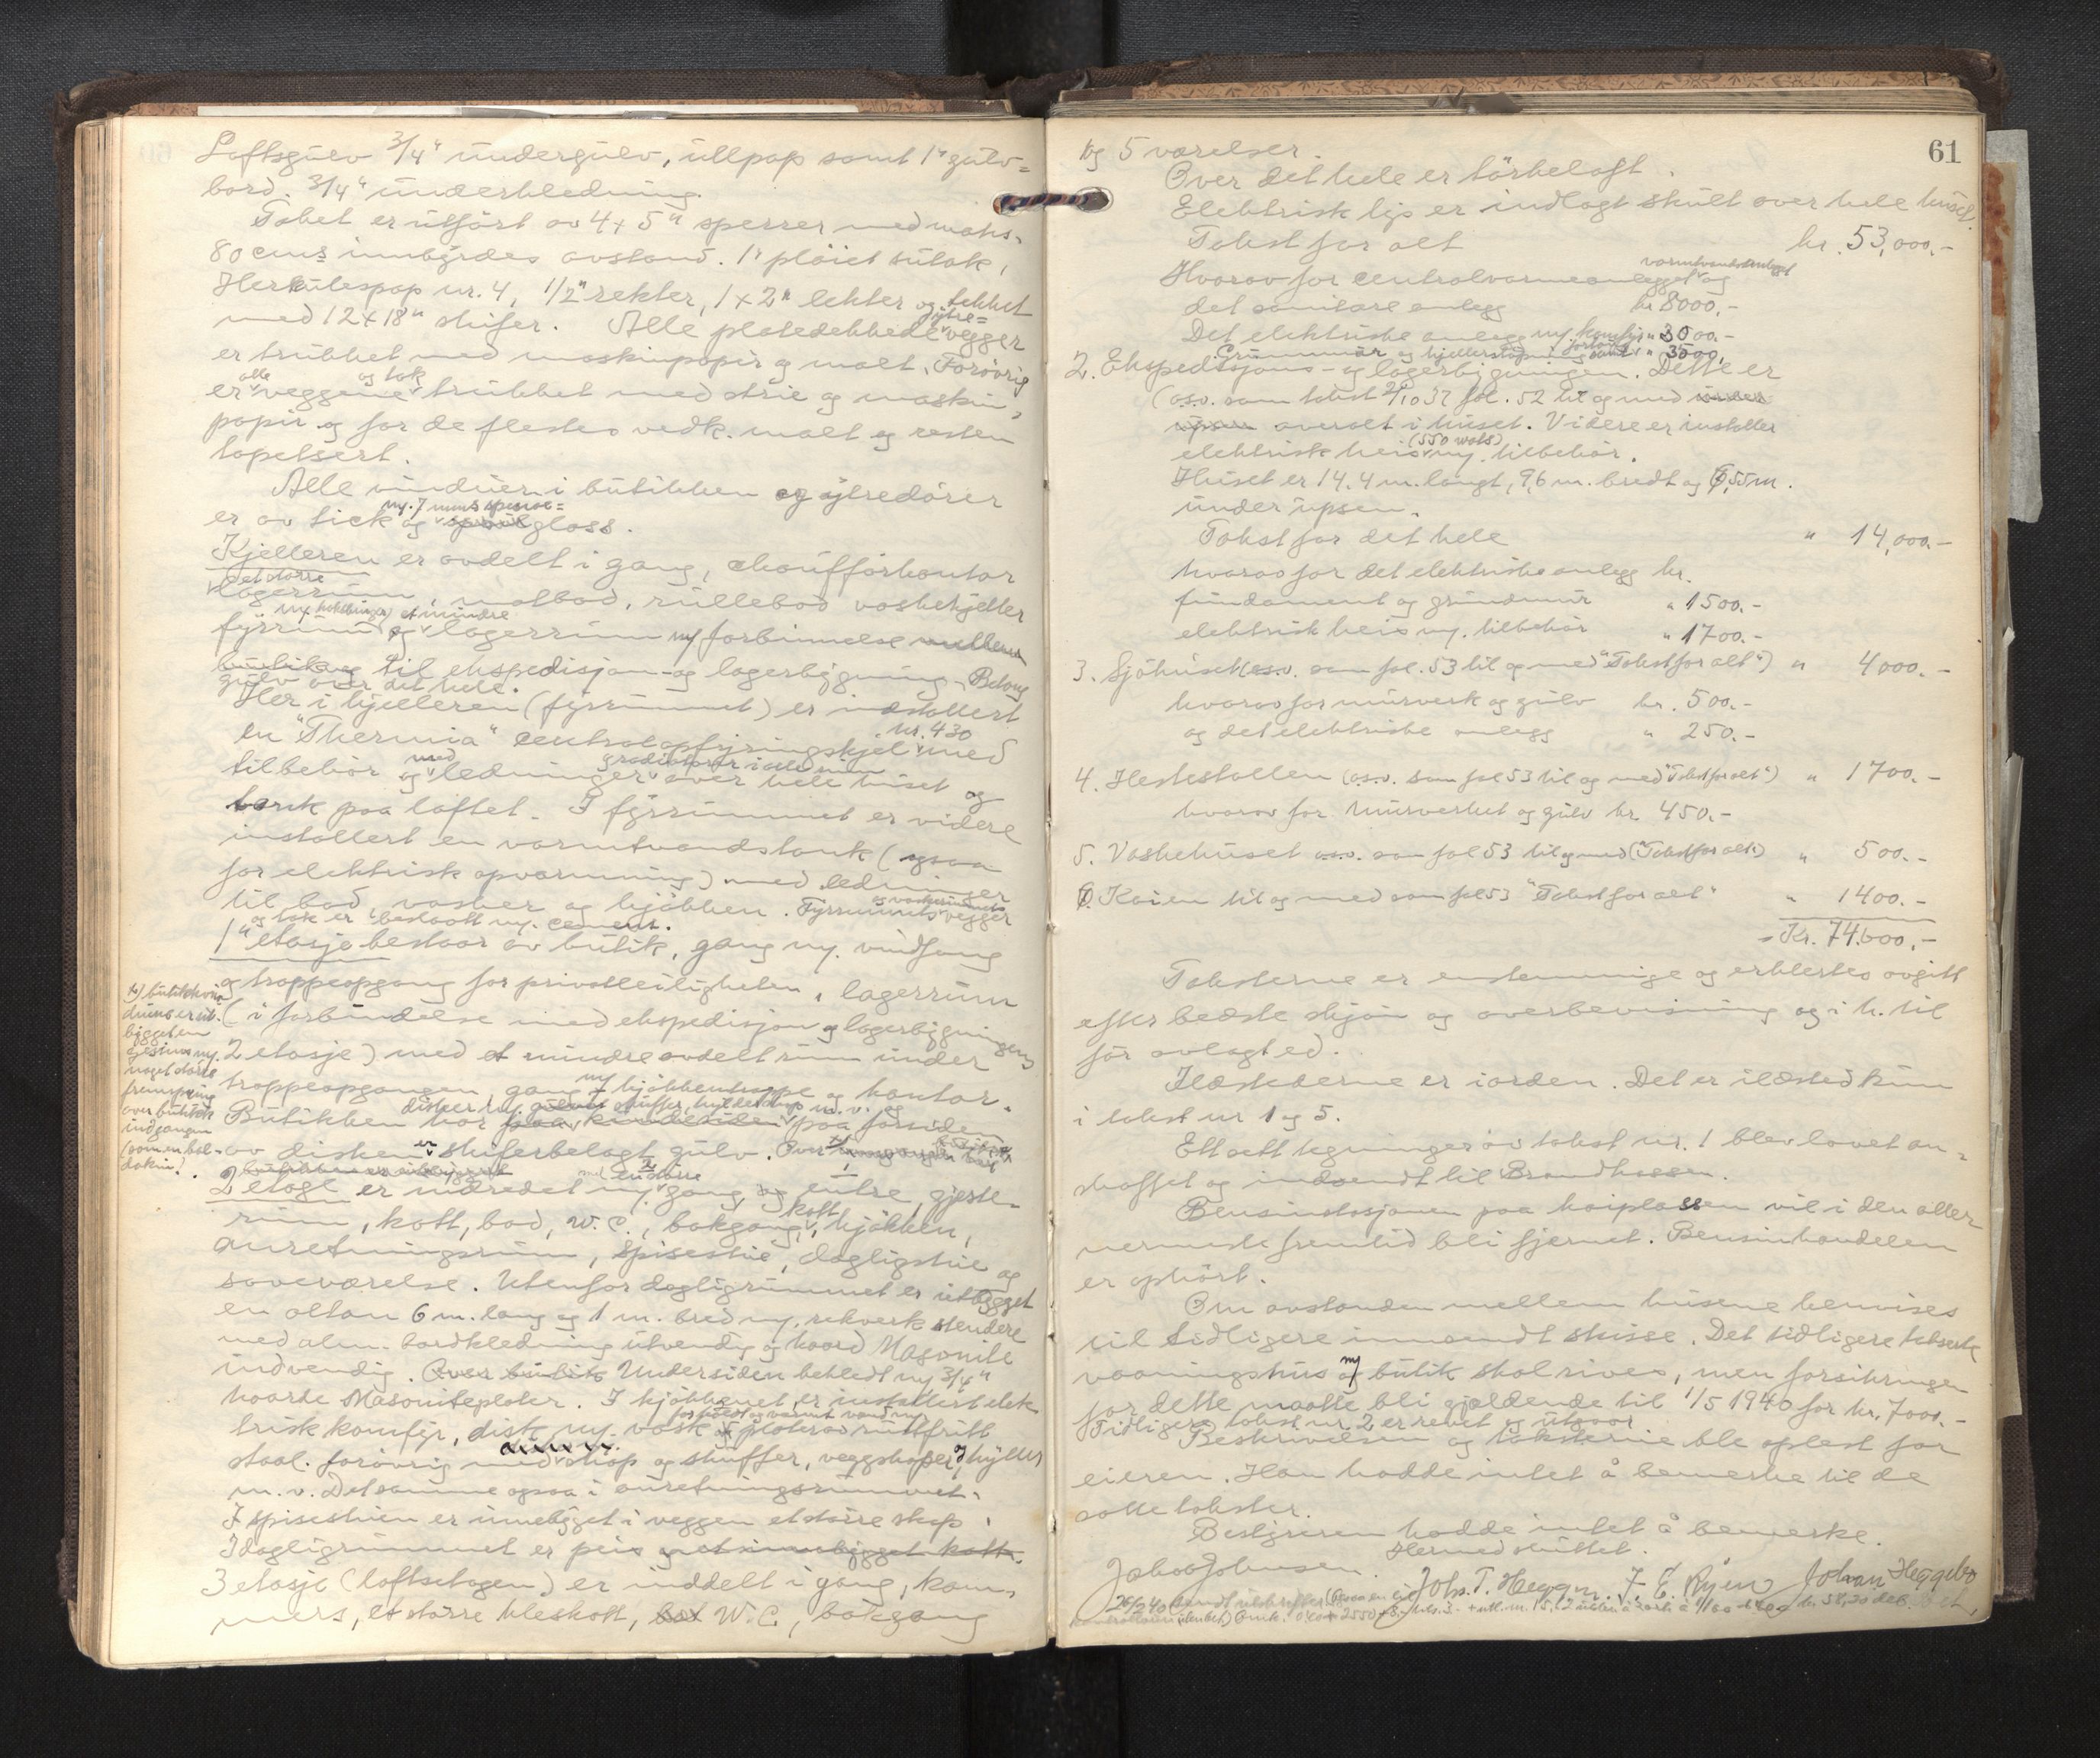 Loftsgulv 3/4" undergulv, ullpap samt 1" gulv=
bord. 3/4" underkledning.
Taket er utført av 4 x 5" sperrer med maks.
80 cms innbyrdes avstand. 1" pløiet sutak,
Herkulespap nr. 4, 1/2" rekter, 1 x 2" lekter og tekket
med 12 x 18" skifer. Alle platedekkede ytre= vegger
er trukket med maskinpapir og malt. Forøvrig
er alle veggene og tak trukket med strie og maskin=
papir og for de flestes vedk. malt og resten
tapetsert.
Alle vinduer i butikken og ytredører
er av tick og m/ 7 mms speil= glass.
Kjelleren er avdelt i gang, chaufførkontor
det større lagerrum, matbod, rullebod vaskekjeller
fyrrum og et mindre lagerrum m/ forbinnelse mellem
butik og til ekspedisjon- og lagerbygning. Betong
gulv over det hele.
Her i kjelleren (fyrrummet) er installert
en "Thermia" centralopfyringskjel nr. 430 med
tilbehør og med ledninger radiatorer i alle rum over hele huset og
tank paa loftet. I fyrrummet er videre
installert en varmtvandstank (ogsaa
for elektrisk opvarmning) med ledninger
til bad, vasker og kjøkken. Fyrrummets vegger
og tak er beslaatt m/ cement.
1" etasje bestaar av butik, gang m/ vindfang
og trappeopgang for privatleiligheten, lagerrum
(i forbindelse med ekspedisjon og lagerbygningens
2 etasje) med et mindre avdelt rum under
trappeopgangen gang m/ kjøkkentrappe og kontor.
Butikken har disker m/ skuffer, hylder m.v. og paa forsiden
av disken er skiferbelagt gulv. Over
x) butikkvin
duene er ut-
bygget en
gesims m/
noget større
fremspring
over butikk
indgangen
(som en bal-
dakin).
2 etage er indredet m/ en større gang, entre, gjeste-
rum, kott, bad, W.C., bakgang, kott, kjøkken,
anretningsrum, spisestue, dagligstue og
soveværelse. Utenfor dagligrummet er utbygget
en altan 6 m. lang og 1 m. bred m/ rekverk stendere
med alm. bordkledning utvendig og haard Masonite
indvendig. Over butik Undersiden bekledt m/ 3/16"
haarde Masoniteplater. I kjøkkenet er installert elek-
trisk komfyr, disk m/ vask og plater av rustfritt
staal. forøvrig med skap og skuffer, veggskaper og hyller
m.v. Det samme ogsaa i anretningsrummet.
I spisestuen er innebygget i veggen et større skap.
I dagligrummet er peis og et innebygget kott.
3 etasje (loftsetagen) er inddelt i gang, kam-
mers, et større kleskott, bad W.C., bakgang
61
og 5 værelser.
Over det hele er tørkeloft.
Elektrisk lys er indlagt skult over hele huset.
Takst for alt kr. 53,000.-
Hvorav for centralvarmeanlegget varmtvandsanlegget og
det sanitære anlegg kr 8000.-
Det elektriske anlegg m/ komfyr " 3000.-
Grunnmur og kjellerstøpning " 3500.
2. Ekspedisjons- og lagerbygningen. Dette er
(o.s.v. som takst 2/10 37 fol. 52 til og med under
upsen overalt i huset. Videre er installer
elektrisk heis (550 wats) m/ tilbehør.
Huset er 14.4 m. langt, 9,6 m. bredt og 6,55 m.
under upsen.
Takst for det hele " 14,000.-
hvorav for det elektriske anlegg kr.
fundament og grundmur " 1500.-
elektrisk heis m/ tilbehør " 1700.-
3. Sjøhuset (o.s.v. som fol. 53 til og med "Takst for alt") " 4000.-
hvorav for murverk og gulv kr. 500.-
og det elektriske anlegg " 250.-
4. Hestestallen (o.s.v. som fol 53 til og med "Takst for alt") " 1700.-
hvorav for murverket og gulv kr. 450.-
5. Vaskehuset o.s.v. som fol 53 til og med ("Takst for alt") " 500.-
6. Kaien til og med som fol 53 "Takst for alt" " 1400.-
Kr. 74.600.-
Taksterne er enstemmige og erklertes avgitt
efter bedste skjøn og overbevisning og i h. til
før avlagt ed.
Ildstederne er i orden. Det er ildsted kun
i takst nr 1 og 5.
Ett sett tegninger av takst nr. 1 blev lovet an=
skaffet og indsendt til Brandkassen.
Bensinstasjonen paa kaiplassen vil i den aller
nermeste fremtid bli fjernet. Bensinhandelen
er ophørt.
Om avstanden mellem husene henvises
til tidligere innsendt skisse. Det tidligere takserte
vaaningshus m/ butik skal rives, men forsikringen
for dette maatte bli gjeldende til 1/5 1940 for kr. 7000.-
Tidligere takst nr. 2 er revet og utgaar.
Beskrivelsen og taksterne ble oplest for
eieren. Han hadde intet å bemerke til de
satte takster.
Bestyreren hadde intet å bemerke.
Hermed sluttet.
Jakob Johnsen. Johs. T. Heggø. J. E. Ryen Johan Heggebø
26/2 40 sendt utskrifter